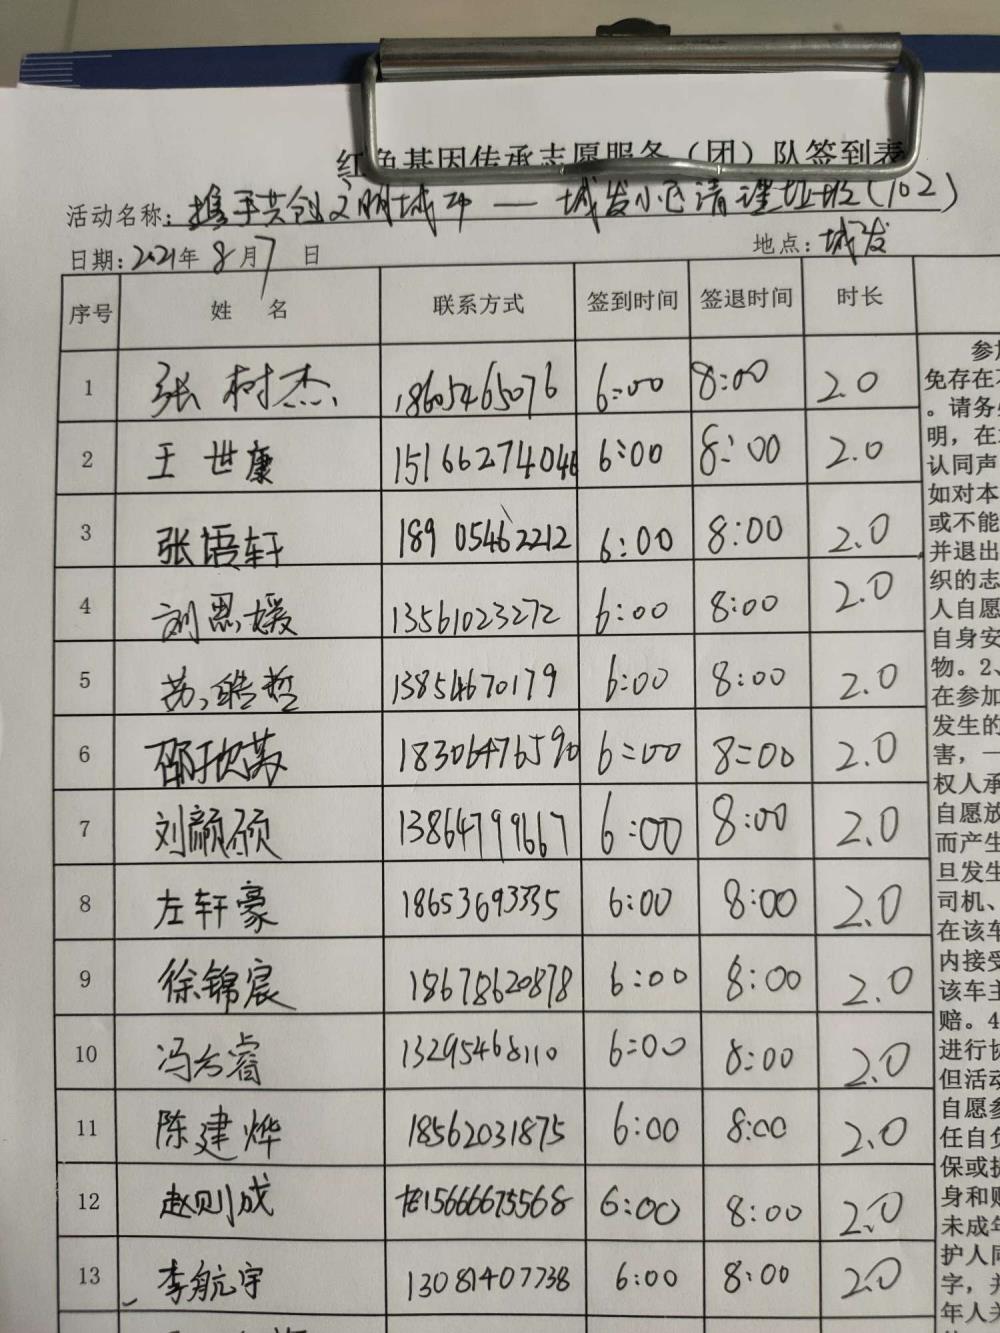 红色基因传承志愿服务（团）队签到表
活动名称：携手共创文明城市 — 城发小区清理垃圾（102）
日期：2021年8月7日 地点：城发
序号 姓 名 联系方式 签到时间 签退时间 时长
1 张树杰 18605465076 6:00 8:00 2.0
2 王世康 15166274046 6:00 8:00 2.0
3 张语轩 18905462212 6:00 8:00 2.0
4 刘思媛 13561023272 6:00 8:00 2.0
5 苏皓哲 13854670179 6:00 8:00 2.0
6 邵 18306476590 6:00 8:00 2.0
7 刘颜硕 13864799667 6:00 8:00 2.0
8 左轩豪 18653693335 6:00 8:00 2.0
9 徐锦宸 18678620878 6:00 8:00 2.0
10 冯 睿 13295468110 6:00 8:00 2.0
11 陈建烨 18562031875 6:00 8:00 2.0
12 赵则成 15666675568 6:00 8:00 2.0
13 李航宇 13081407738 6:00 8:00 2.0
参加
免存在不
。请务必
明，在
认同声
如对本
或不能
并退出
织的志
人自愿
自身安
物。2、
在参加
发生的
害，一
权人承
自愿放
而产生
旦发生
司机、
在该车
内接受
该车主
赔。4
进行协
但活动
自愿参
任自负
保或损
身和财
未成年
护人同
字，并
年人关